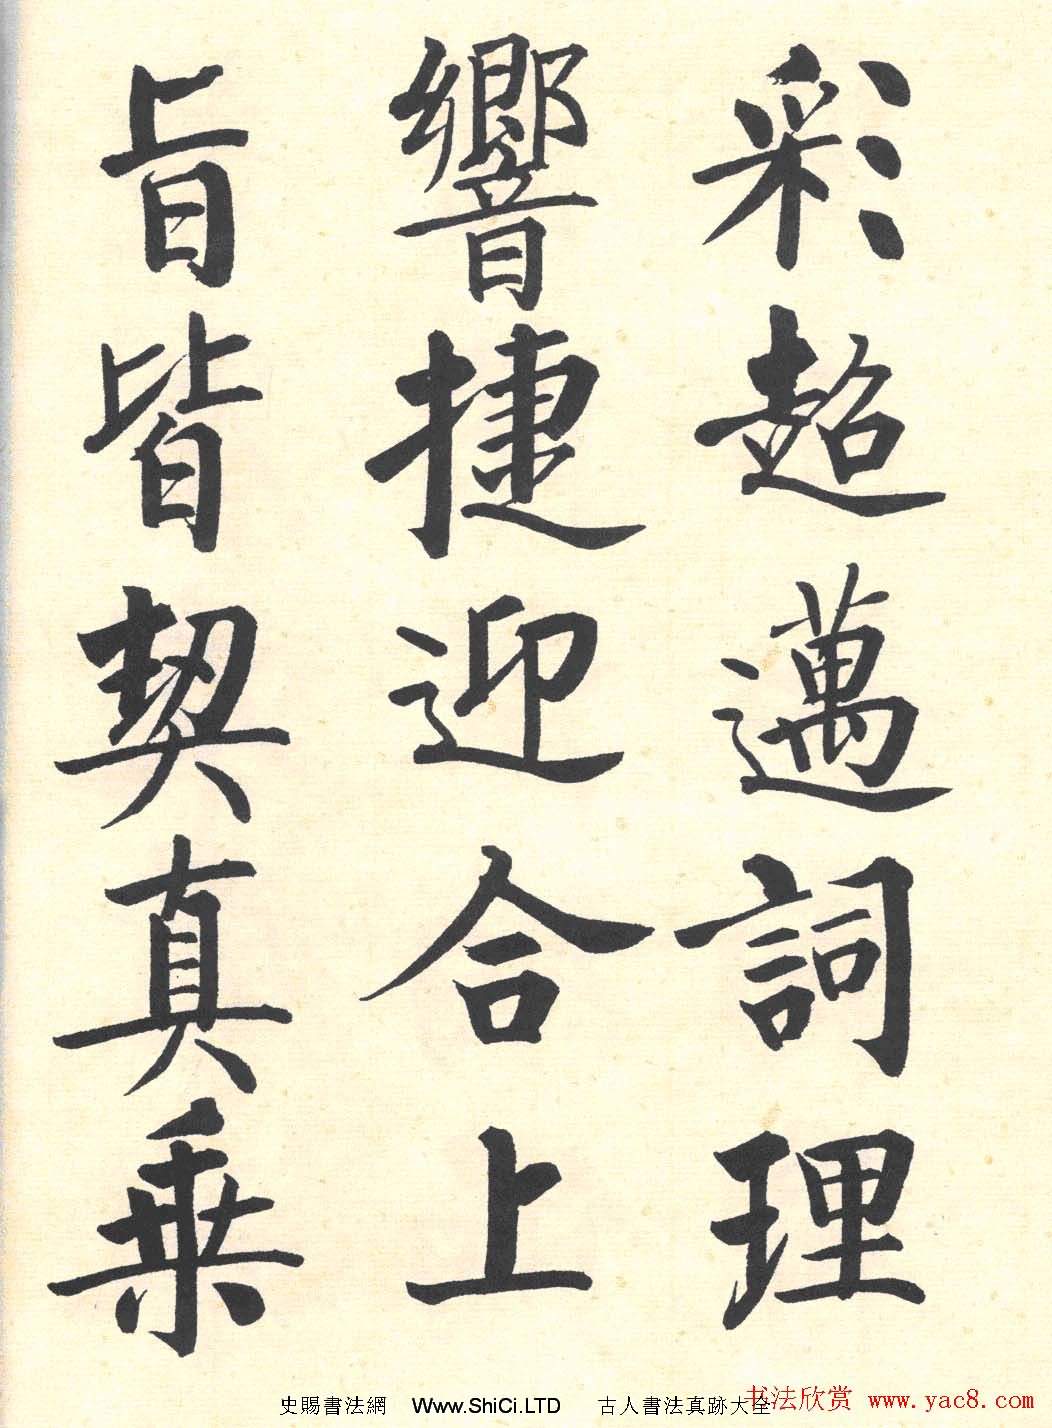 彩超邁詞理
響捷迎合上
旨皆契真乗
史賜書法網 Www.ShiCi.LTD 古人書法真跡大全
书法欣赏 www.yac8.com